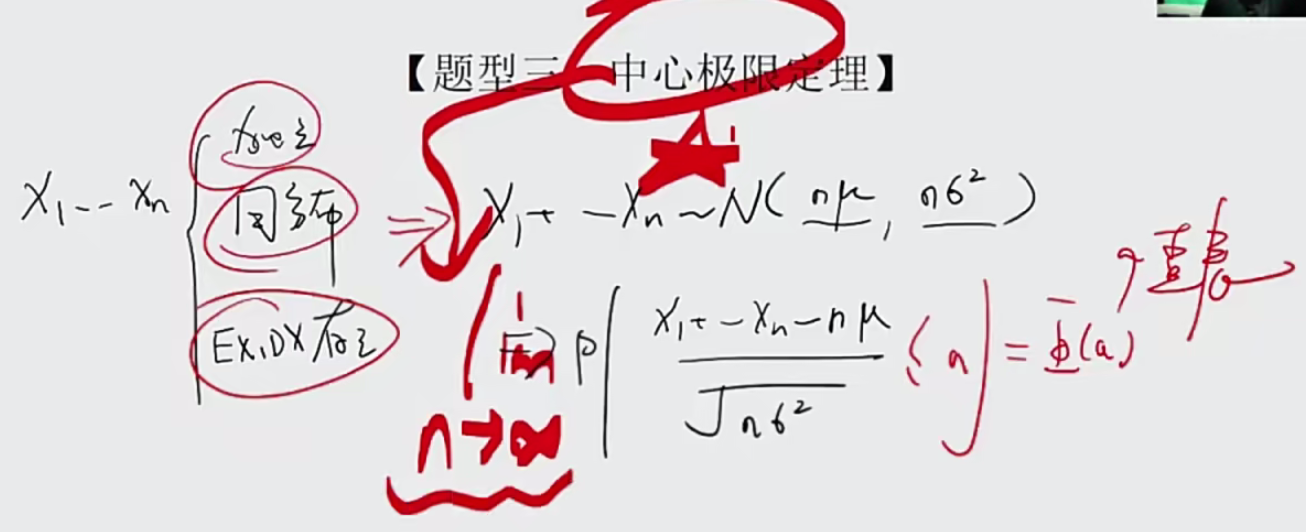 【题型三 中心极限定理】
X₁ -- Xₙ { 独立
同分布
EX, DX 存在
⇒ X₁ + -- Xₙ ~ N( nμ, nσ² )
lim n→∞ P[ (X₁ + -- Xₙ - nμ) / √nσ² ≤ a ] = Φ(a)